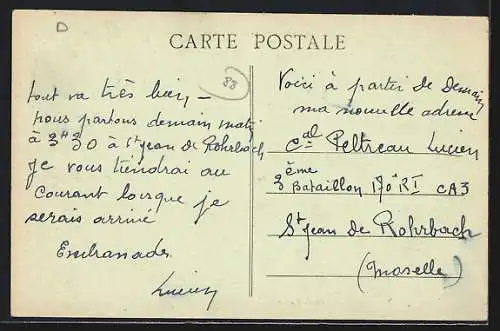 D
CARTE POSTALE
88
tout va très bien –
nous partons demain matin
à 3H30 à St Jean de Rohrbach
je vous tiendrai au
courant lorsque je
serais arrivé
Lucien
Voici à partir de Demain
ma nouvelle adresse
Cal Peltreau Lucien
3ème Bataillon 170e RI CA3
St Jean de Rohrbach
(Moselle)